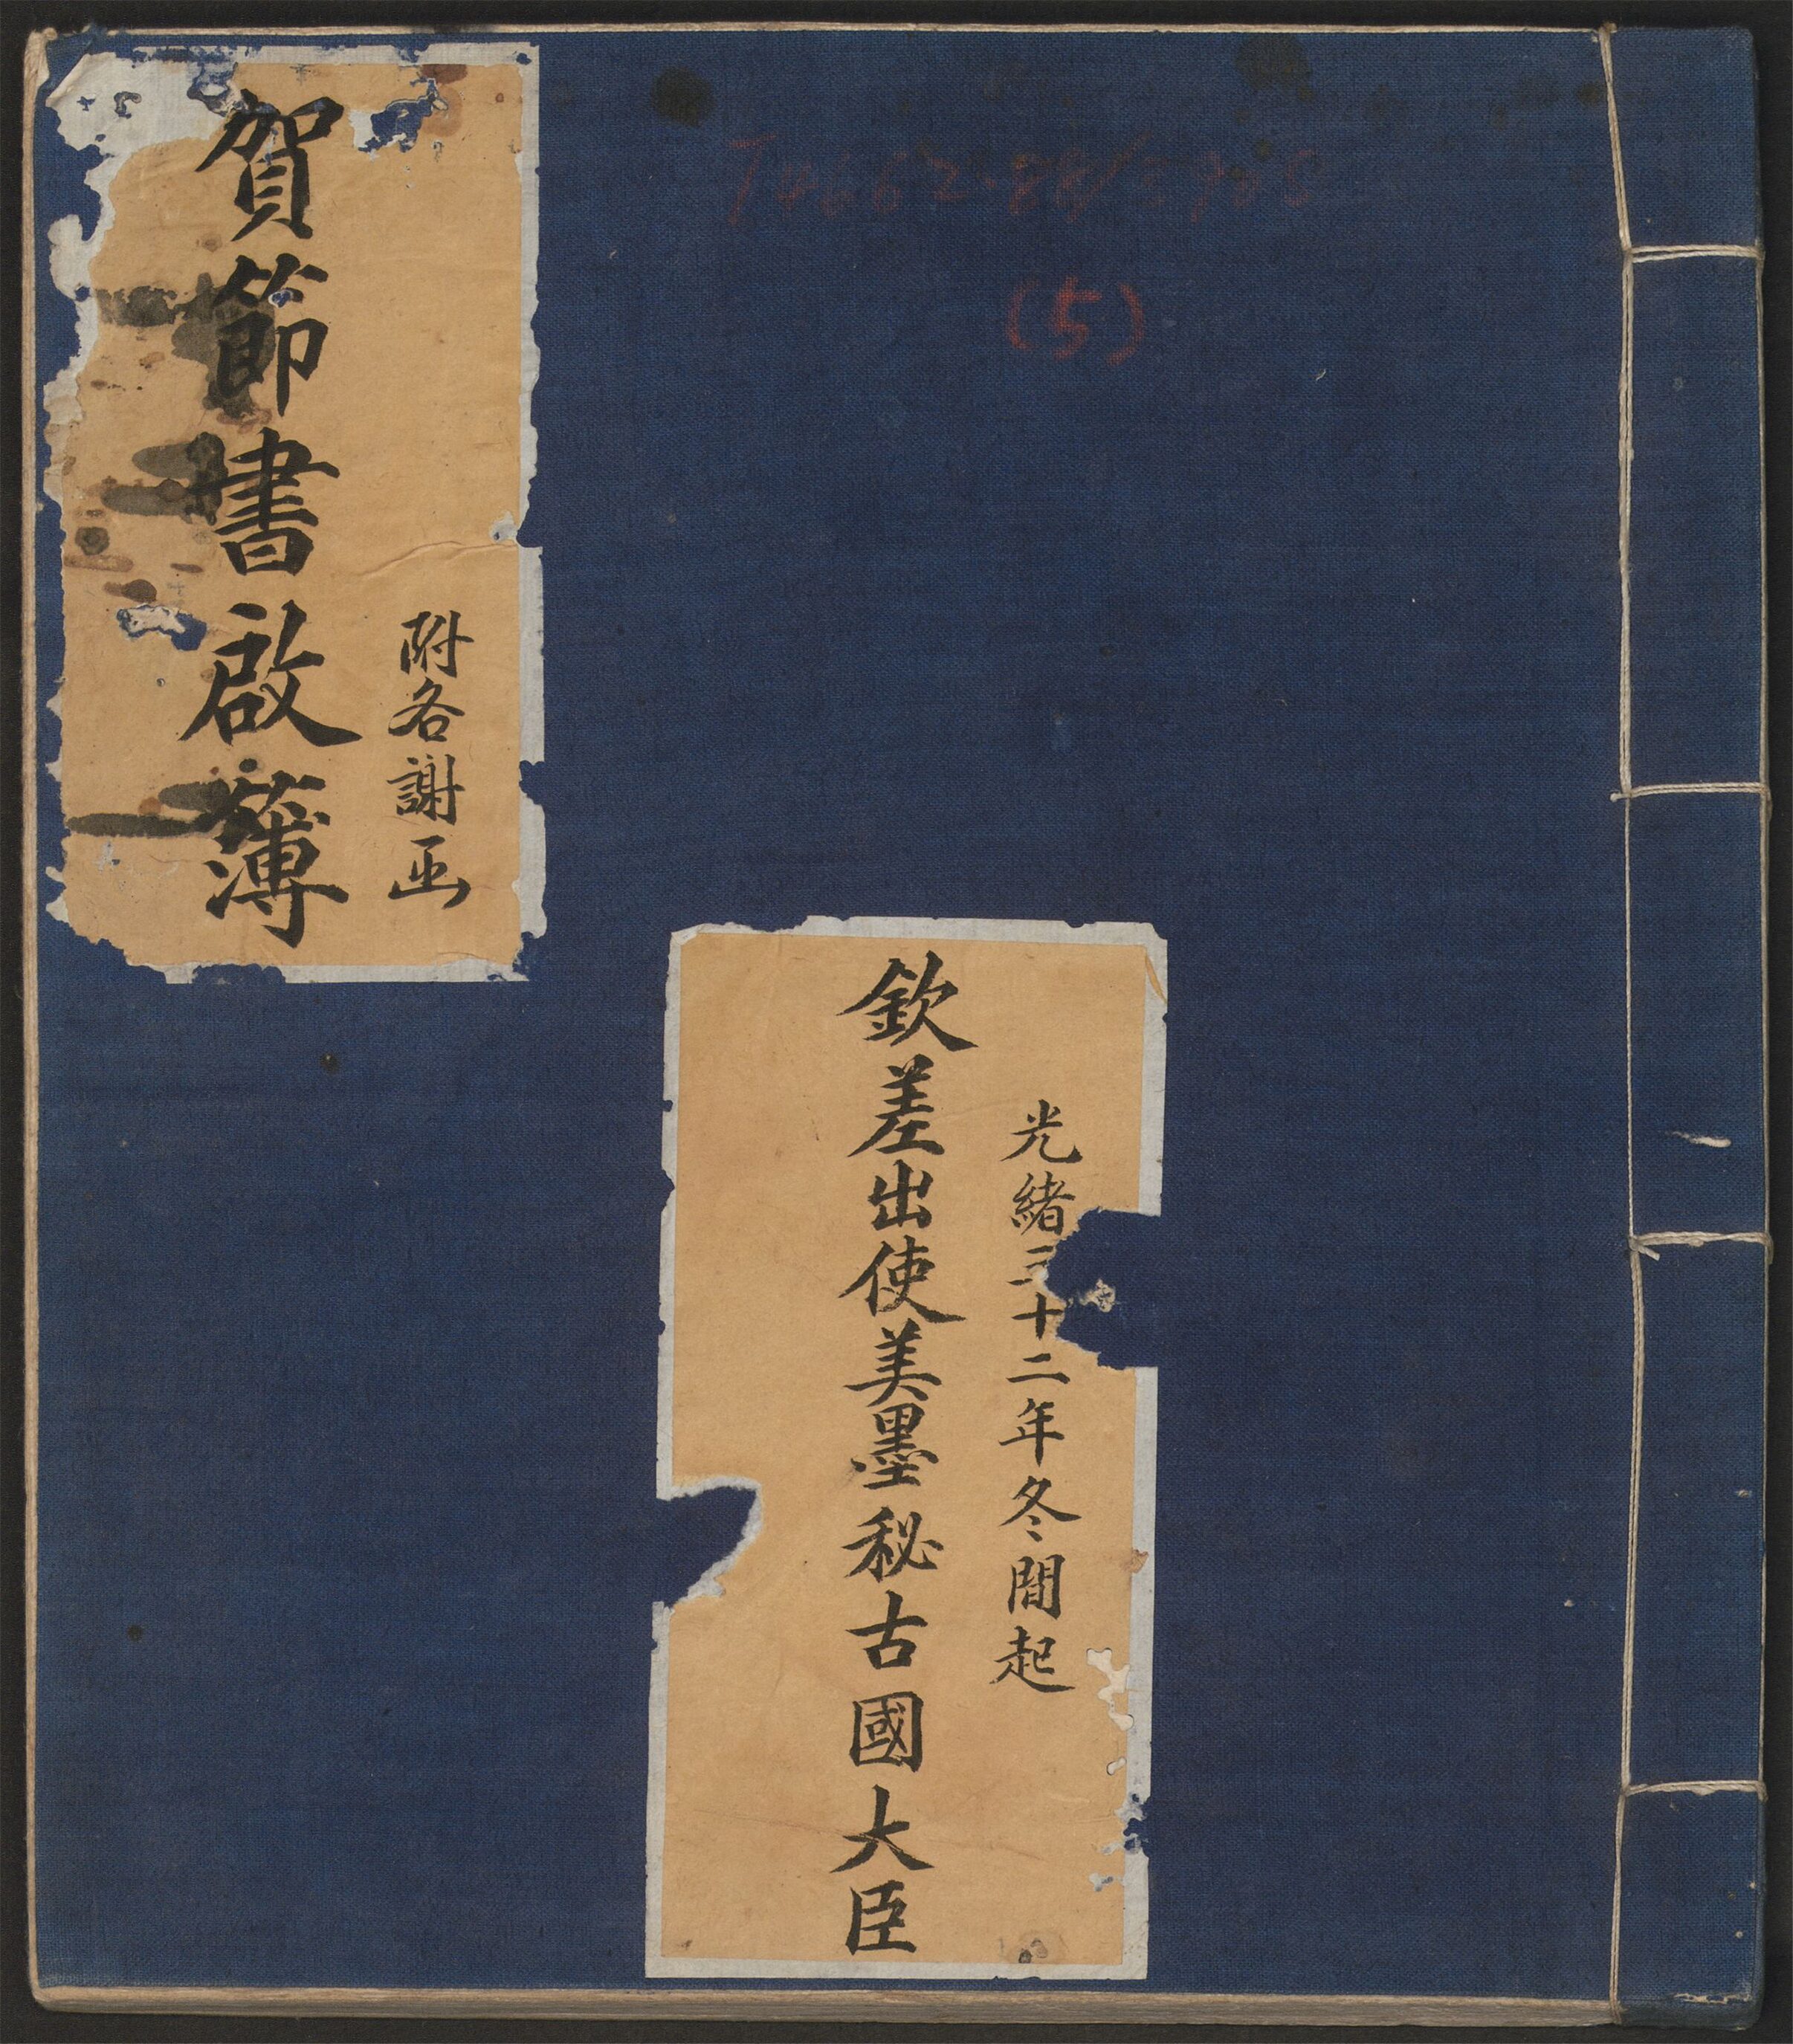 (5)
光緒三十二年冬間起
欽差出使美墨秘古國大臣
附各謝函
賀節書啟簿